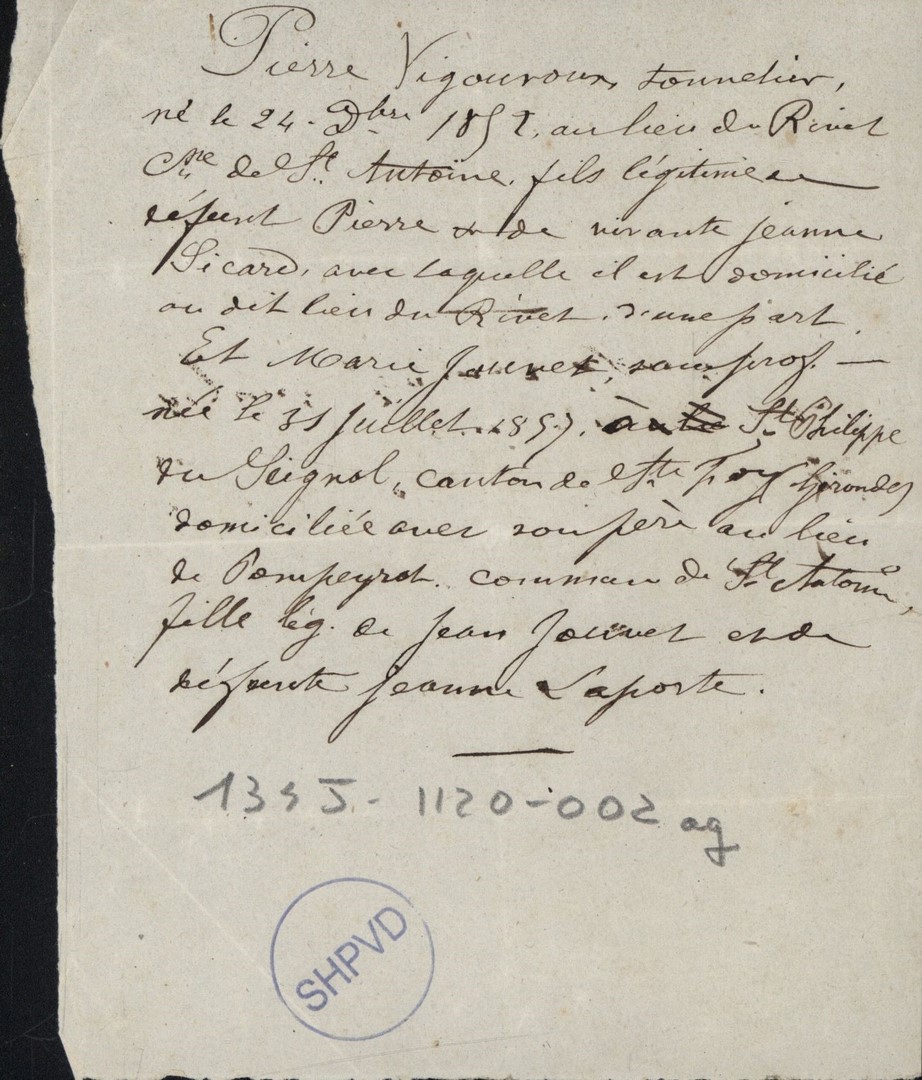 Pierre Vigouroux, tonnelier,
né le 24 Xbre 1852, au lieu du Rivet
Cne de St Antoine, fils légitime de
défunt Pierre & de vivante Jeanne
Sicard, avec laquelle il est domicilié
au dit lieu du Rivet. d'une part.
Et Marie Jouvet, sans prof. —
née le 31 juillet 1857, à St Philippe
du Seignal, canton de Ste Foy Gironde,
domiciliée avec son père au lieu
de Pompeyrot. commune de St Antoine,
fille lég. de Jean Jouvet et de
défunte Jeanne Laporte.
134J - 1120-002 ag
SHPVD